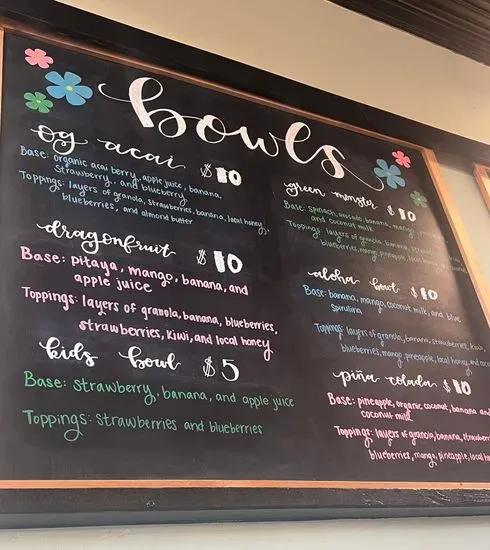 bowls
og acai $10
Base: organic acai berry, apple juice, banana,
strawberry, and blueberry
Toppings: layers of granola, strawberries, banana, local honey,
blueberries, and almond butter
dragonfruit $10
Base: pitaya, mango, banana, and
apple juice
Toppings: layers of granola, banana, blueberries,
strawberries, kiwi, and local honey
kids bowl $5
Base: strawberry, banana, and apple juice
Toppings: strawberries and blueberries
green monster $10
Base: spinach, avocado, banana, mango,
and coconut milk
Toppings: layers of granola, banana,
blueberries, mango, pineapple, local honey,
aloha bowl $10
Base: banana, mango, coconut milk, and blue
spirulina
Toppings: layers of granola, banana, strawberries, kiwi,
blueberries, mango, pineapple, local honey, and
piña coluda $10
Base: pineapple, organic coconut, banana and
coconut milk
Toppings: layers of granola, banana,
blueberries, mango, pineapple, local